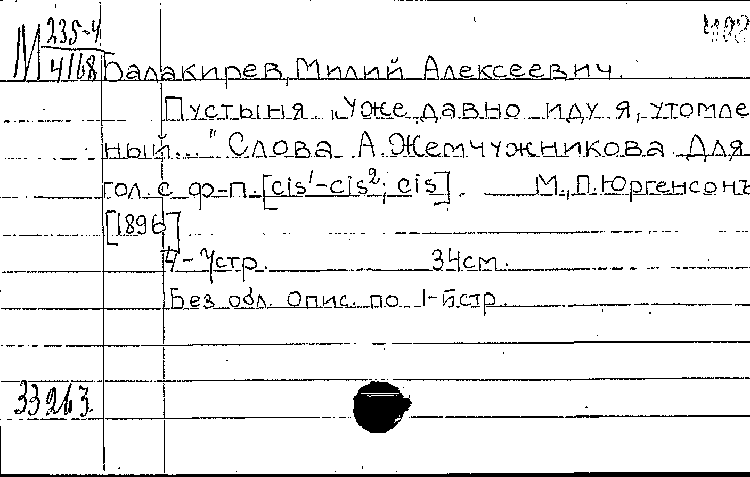 М 235-4
4168
408
Балакирев, Милий Алексеевич.
Пустыня „Уже давно иду я, утомле
ный..." Слова А. Жемчужникова. Для
гол. с ф-п. [cis¹-cis²; cis]. М., П. Юргенсонъ
[1896]
4-7стр. 34см.
Без обл. Опис. по 1-й стр.
33263